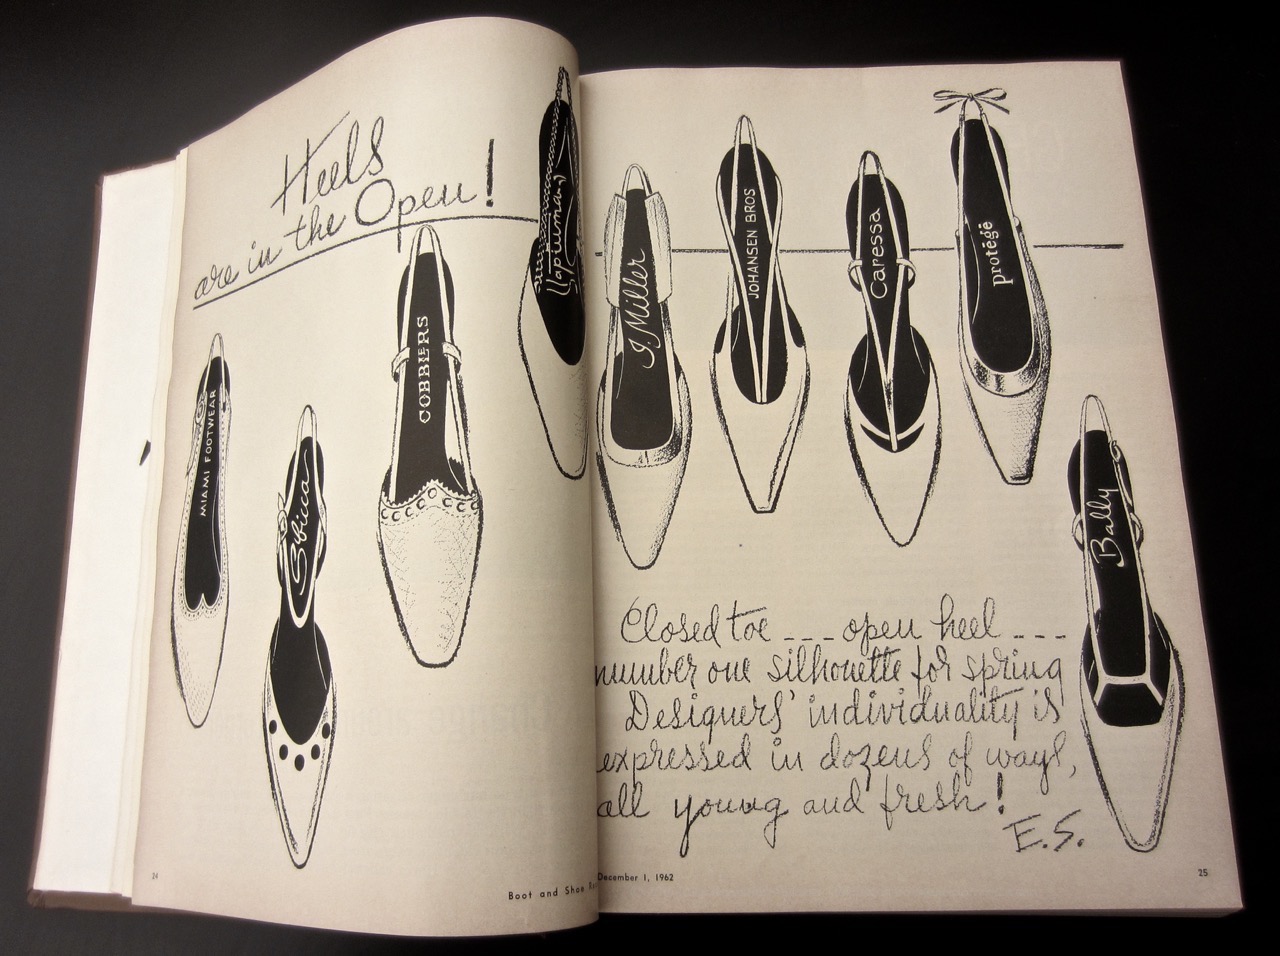 Heels
are in the Open!
MIAMI FOOTWEAR
COBBLERS
I. Miller
JOHANSEN BROS
Caressa
protégé
Bally
Closed toe --- open heel ---
number one silhouette for spring
Designers' individuality is
expressed in dozens of ways,
all young and fresh!
E.S.
24
Boot and Shoe
December 1, 1962
25